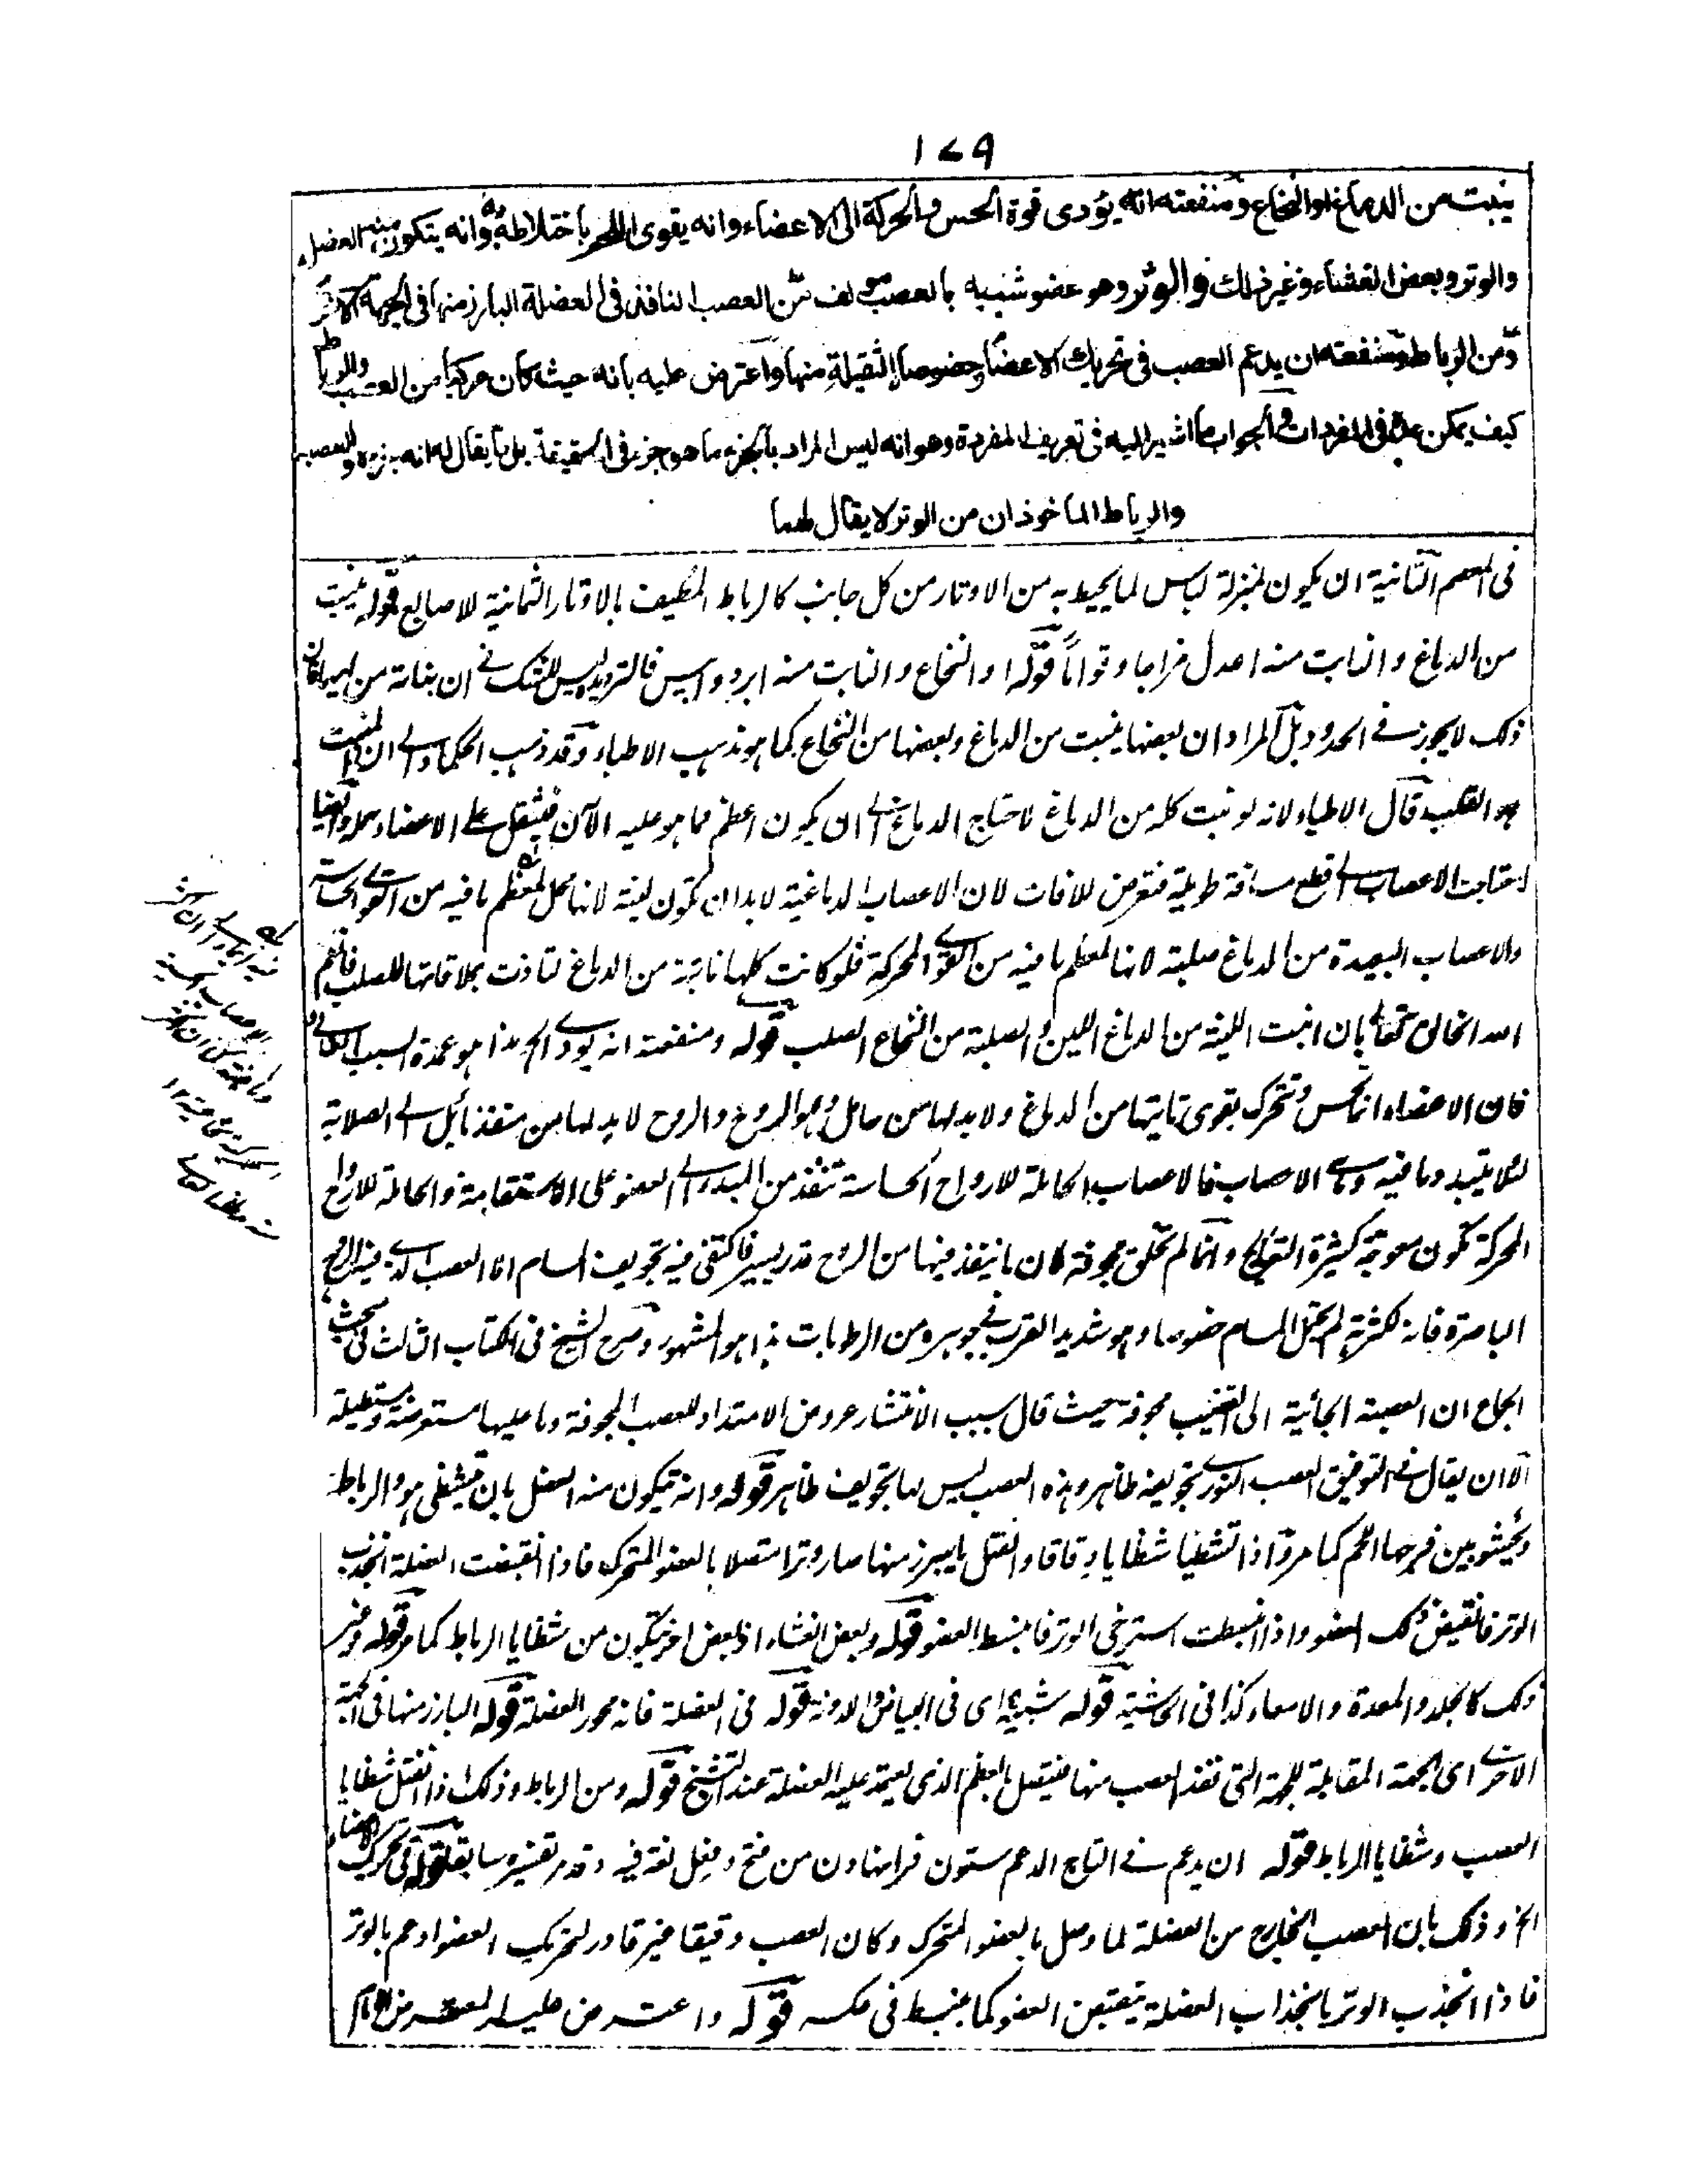 ۱۷۹
ينبت من الدماغ او النخاع ومنفعته انه يؤدى قوة الحس والحركة الى الاعضاء وانه يقوى اللحم باختلاطه به وانه يتكون منه العضل
والوتر وبعض الغشاء وغير ذلك والوتر وهو عضو شبيه بالعصب مؤلف من العصب النافذ فى العضلة البارز منها فى الجهة الاخرى
ومن الرباط ومنفعته ان يدعم العصب فى تحريك الاعضاء وخصوصا الثقيلة منها واعترض عليه بانه حيث كان مركبا من العصب والرباط
كيف يمكن عده فى المفردات والجواب ما اشير اليه فى تعريف المفردة وهو انه ليس المراد بالجزء ما هو جزء فى الحقيقة بل ما يقال له انه جزءه والعصب
والرباط الماخوذان من الوتر لا يقال لهما
فى المعصم الثانية ان يكون بمنزلة لباس لما يحيط به من الاوتار من كل جانب كالرباط المطيف بالاوتار الثمانية للاصابع قوله ينبت
من الدماغ والنابت منه اعدل مزاجا وقواما قوله او النخاع والنابت منه ابرد وايبس فالترديد ليس للشك فى ان نباته من ايهما فان
ذلك لا يجوز فى الحدود بل المراد ان بعضها ينبت من الدماغ وبعضها من النخاع كما هو مذهب الاطباء وقد ذهب الحكماء الى ان المنبت
هو القلب قال الاطباء لانه لو نبت كله من الدماغ لاحتاج الدماغ الى ان يكون اعظم مما هو عليه الآن فيثقل على الاعضاء حمله وايضا
لاحتاجت الاعصاب الى قطع مسافة طويلة فتعرض للافات لان الاعصاب الدماغية لابد ان تكون لينة لانها محل لمعظم ما فيه من القوى الحساسة
والاعصاب البعيدة من الدماغ صلبة لانها لمعظم ما فيه من القوى المحركة فلو كانت كلها نابتة من الدماغ لتاذت بملاقاتها للصلب فانعم
الله الخالق تعالى بان انبت اللينة من الدماغ اللين والصلبة من النخاع الصلب قوله ومنفعته انه يؤدى الخ هذا هو عمدة السبب
فان الاعضاء انما تحس وتتحرك بقوى تاتيها من الدماغ ولابد لها من حامل وهو الروح والروح لابد لها من منفذ مائل الى الصلابة
لئلا يتبدد ما فيه وهى الاعصاب فالاعصاب الحاملة للارواح الحساسة تنفذ من المبدء الى العضو على الاستقامة والحاملة للارواح
المحركة تكون معوجة كثيرة التعاريج وانما لم تخلق مجوفة لان ما ينفذ فيها من الروح قدر يسير فاكتفى فيه بتجويف المسام اما العصب الذى فيه الروح
الباصرة فانه لكثرته لم يحتمل المسام خصوصا وهو شديد القرب فى جوهره من الرطوبات هذا هو المشهور وصرح الشيخ فى الكتاب الثالث فى مبحث
الجماع ان العصبة الجائية الى القضيب مجوفة حيث قال سبب الانتشار عروض الامتداد للعصب المجوفة وما عليها مستعرضة ومستطيلة
الا ان يقال فى التوفيق العصب النورى تجويفه ظاهر وهذه العصب ليس لها تجويف ظاهر قوله وانه يتكون منه العضل بان يتشظى هو والرباط
ويحشو بين فرجها اللحم كما مر واذا تشظيا شظايا دقاقا وانفتل ما يبرز منها صار وترا متصلا بالعضو المتحرك فاذا انقبضت العضلة انجذب
الوتر فانقبض ذلك العضو واذا انبسطت استرخى الوتر فانبسط العضو قوله وبعض الغشاء اذ بعض اخر يتكون من شظايا الرباط كما مر قوله وغير
ذلك كالجلد والمعدة والامعاء كذا فى الحاشية قوله شبيه اى فى البياض واللدونة قوله فى العضلة فانه محور العضلة قوله البارز منها فى الجهة
الاخرى اى الجهة المقابلة للجهة التى نفذ العصب منها فيتصل بالعظم الذى يعتمد عليه العضلة عند التشنج قوله ومن الرباط وذلك اذا انفتل شظايا
العصب وشظايا الرباط قوله ان يدعم فى التاج الدعم ستون فرانهادن من فتح وفعل لغة فيه وقد مر تفسيره سابقا قوله فى تحريك الاعضاء
الخ وذلك بان العصب الخارج من العضلة لما وصل بالعضو المتحرك وكان العصب دقيقا غير قادر لتحريك العضو ادعم بالوتر
فاذا انجذب الوتر بانجذاب العضلة يتقبض العضو كما ينبسط فى عكسه قوله واعترض عليه المعترض